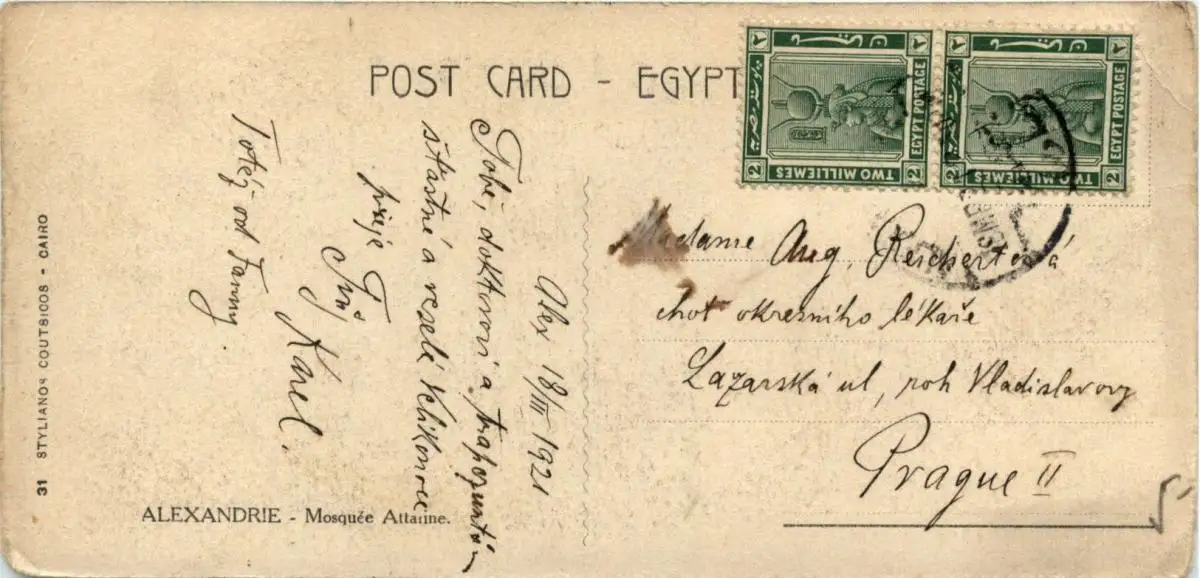 POST CARD - EGYPT
EGYPT POSTAGE
TWO MILLIEMES
2 2
EGYPT POSTAGE
TWO MILLIEMES
2 2
Alex 18/III 1921
Tobě, doktorovi a
šťastné a veselé Velikonoce
přeje
Tvůj
Karel.
Totéž od Fanny.
Madame Aug. Reichertová
chot okresního lékaře
Lazarská ul, roh Vladislavovy
Prague II
ALEXANDRIE - Mosquée Attarine.
31 STYLIANOS COUTSICOS - CAIRO